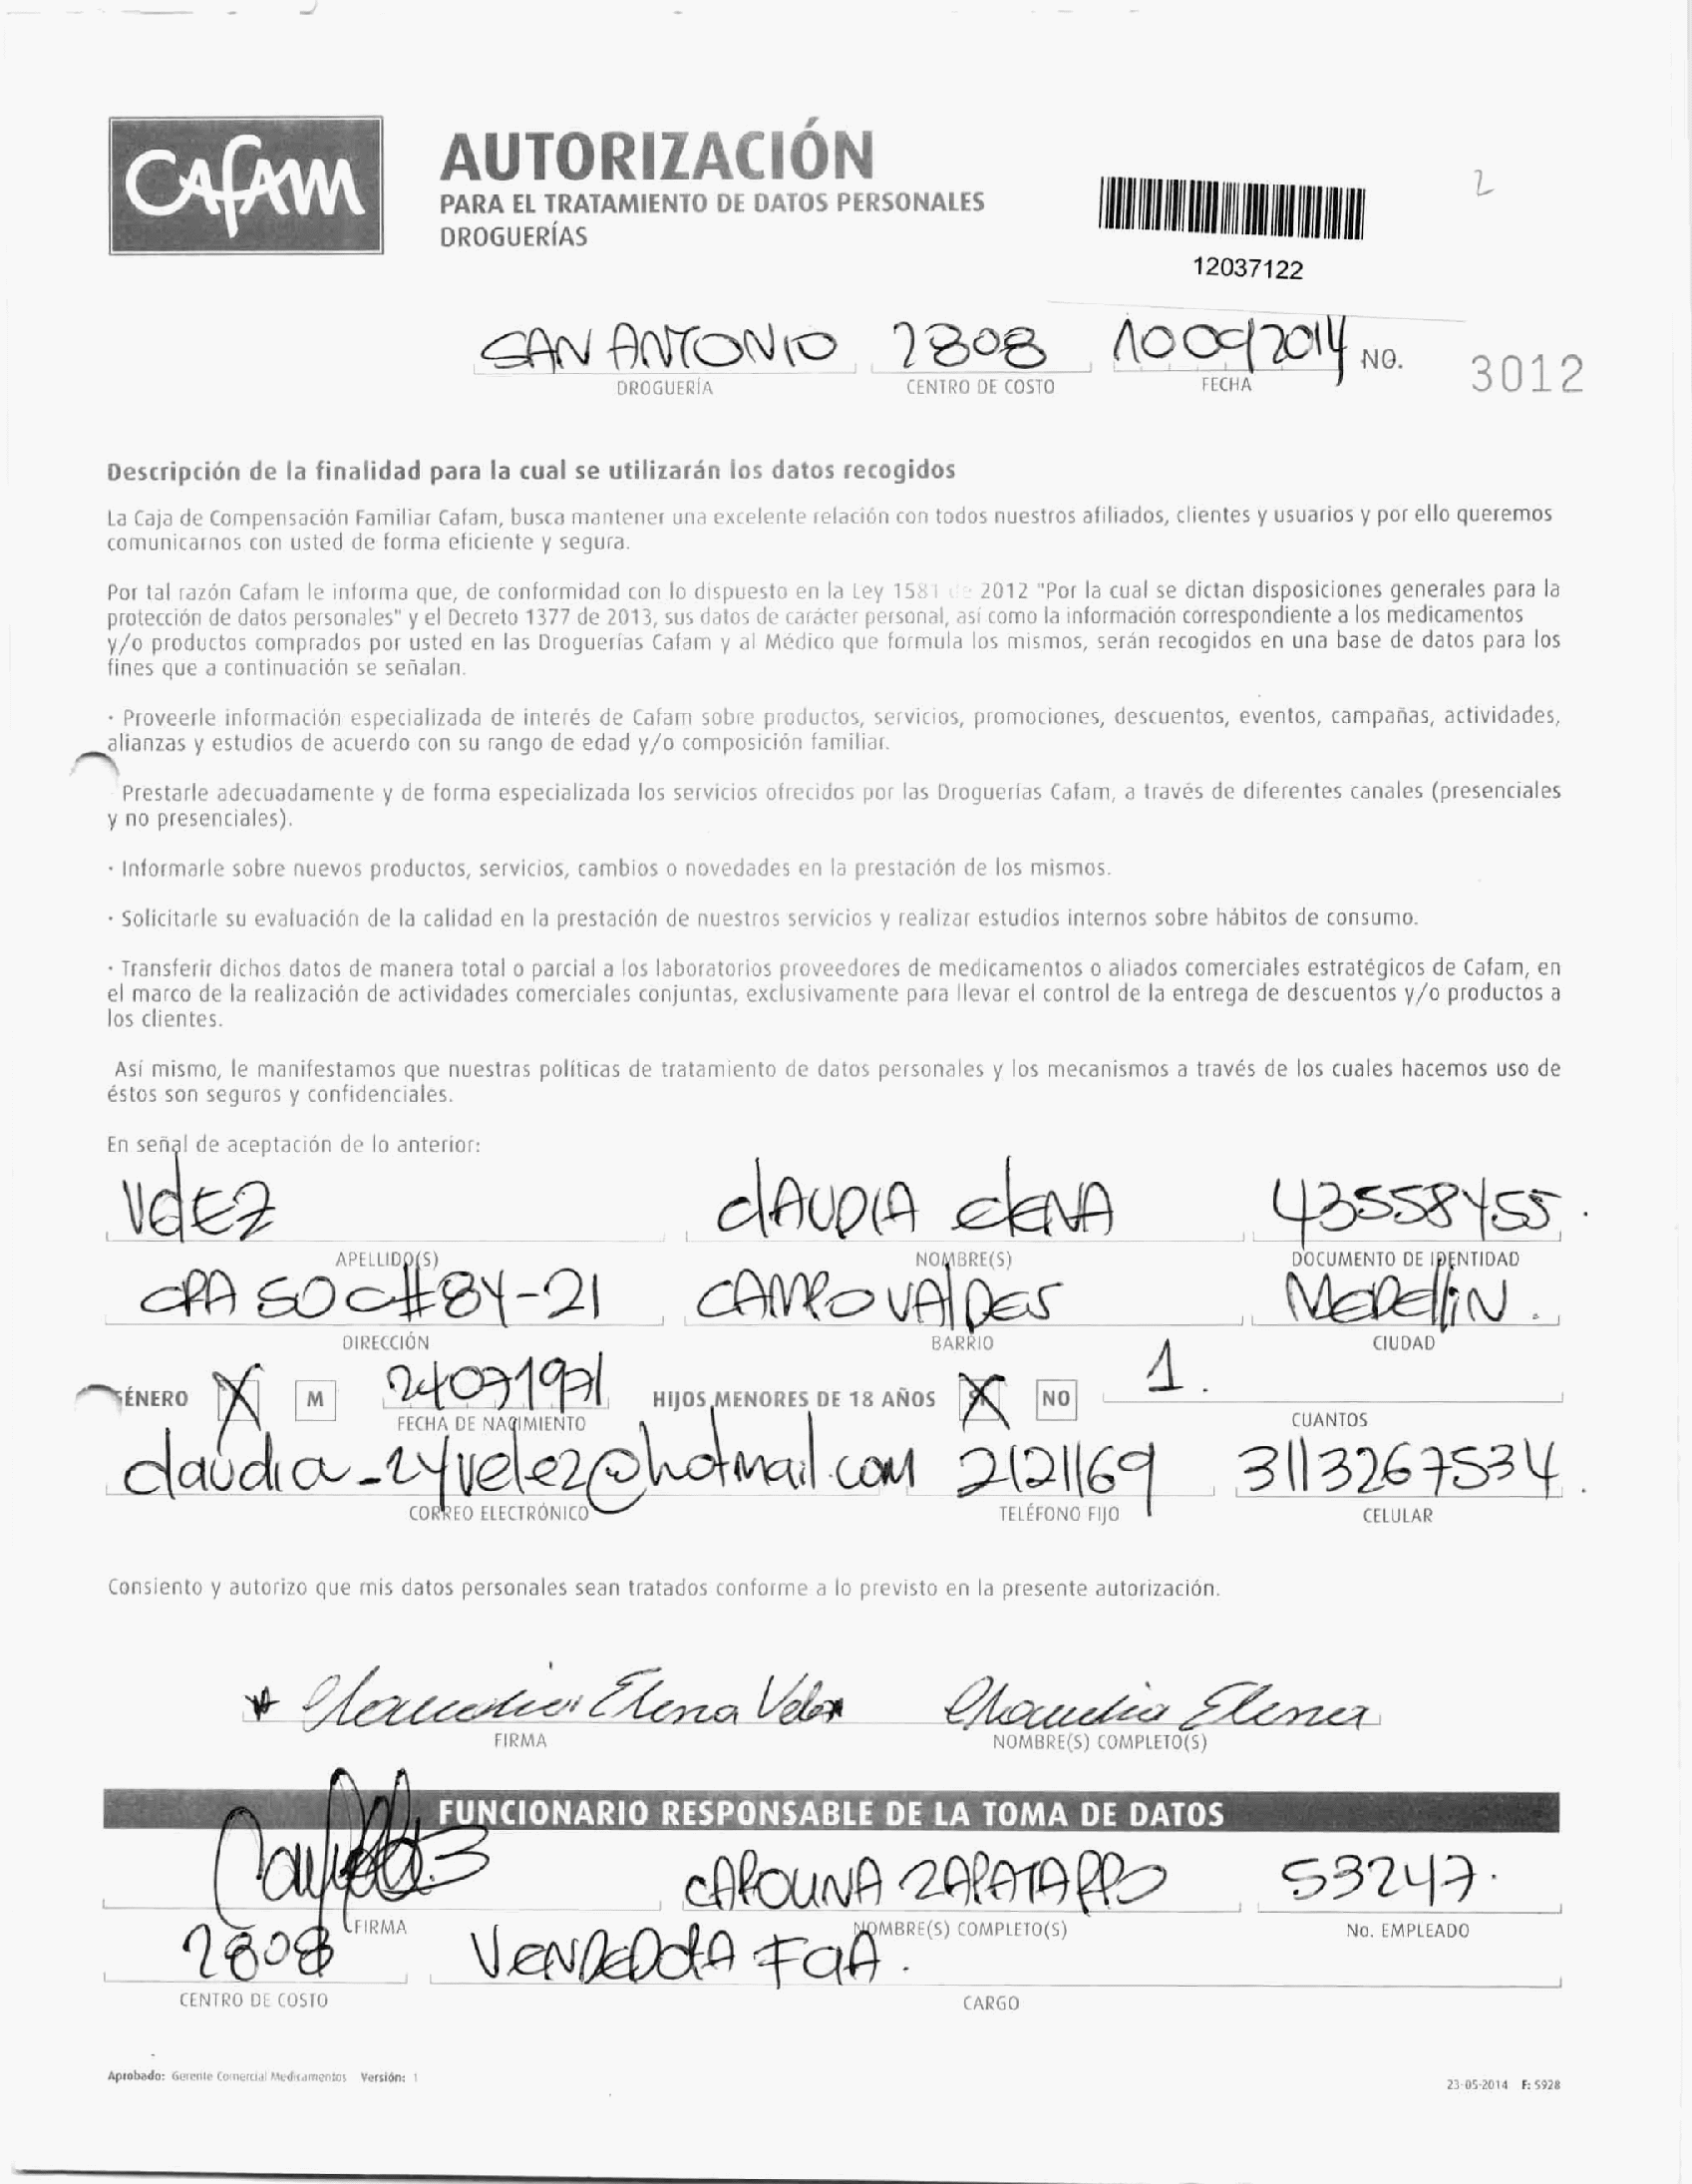 CAFAM
AUTORIZACIÓN
PARA EL TRATAMIENTO DE DATOS PERSONALES
DROGUERÍAS
2
12037122
SAN ANTONIO 2808 10092014 NO. 3012
DROGUERÍA CENTRO DE COSTO FECHA
Descripción de la finalidad para la cual se utilizarán los datos recogidos
La Caja de Compensación Familiar Cafam, busca mantener una excelente relación con todos nuestros afiliados, clientes y usuarios y por ello queremos
comunicarnos con usted de forma eficiente y segura.
Por tal razón Cafam le informa que, de conformidad con lo dispuesto en la Ley 1581 de 2012 "Por la cual se dictan disposiciones generales para la
protección de datos personales" y el Decreto 1377 de 2013, sus datos de carácter personal, así como la información correspondiente a los medicamentos
y/o productos comprados por usted en las Droguerías Cafam y al Médico que formula los mismos, serán recogidos en una base de datos para los
fines que a continuación se señalan.
· Proveerle información especializada de interés de Cafam sobre productos, servicios, promociones, descuentos, eventos, campañas, actividades,
alianzas y estudios de acuerdo con su rango de edad y/o composición familiar.
Prestarle adecuadamente y de forma especializada los servicios ofrecidos por las Droguerías Cafam, a través de diferentes canales (presenciales
y no presenciales).
· Informarle sobre nuevos productos, servicios, cambios o novedades en la prestación de los mismos.
· Solicitarle su evaluación de la calidad en la prestación de nuestros servicios y realizar estudios internos sobre hábitos de consumo.
· Transferir dichos datos de manera total o parcial a los laboratorios proveedores de medicamentos o aliados comerciales estratégicos de Cafam, en
el marco de la realización de actividades comerciales conjuntas, exclusivamente para llevar el control de la entrega de descuentos y/o productos a
los clientes.
Así mismo, le manifestamos que nuestras políticas de tratamiento de datos personales y los mecanismos a través de los cuales hacemos uso de
éstos son seguros y confidenciales.
En señal de aceptación de lo anterior:
VelEZ clAUDIA ElENA 43558455.
APELLIDO(S) NOMBRE(S) DOCUMENTO DE IDENTIDAD
CRA 50C#84-21 CAMPOVAlDES MEDEllIN.
DIRECCIÓN BARRIO CIUDAD
GÉNERO X M 24071971 HIJOS MENORES DE 18 AÑOS X NO 1.
FECHA DE NACIMIENTO CUANTOS
claudia_24velez@hotmail.com 2121169 3113267534.
CORREO ELECTRÓNICO TELÉFONO FIJO CELULAR
Consiento y autorizo que mis datos personales sean tratados conforme a lo previsto en la presente autorización.
* Claudia Elena Velez Claudia Elena
FIRMA NOMBRE(S) COMPLETO(S)
FUNCIONARIO RESPONSABLE DE LA TOMA DE DATOS
CAROLINA ZAPATA 53247.
FIRMA NOMBRE(S) COMPLETO(S) No. EMPLEADO
2808 VENDEDORA FGA.
CENTRO DE COSTO CARGO
Aprobado: Gerente Comercial Medicamentos Versión: 1
23-05-2014 F: 5928